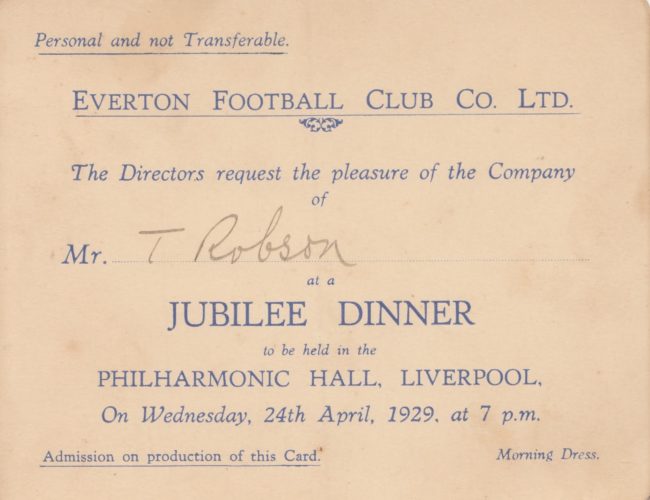 Personal and not Transferable.
EVERTON FOOTBALL CLUB CO. LTD.
The Directors request the pleasure of the Company
of
Mr. T Robson
at a
JUBILEE DINNER
to be held in the
PHILHARMONIC HALL, LIVERPOOL,
On Wednesday, 24th April, 1929, at 7 p.m.
Admission on production of this Card.
Morning Dress.